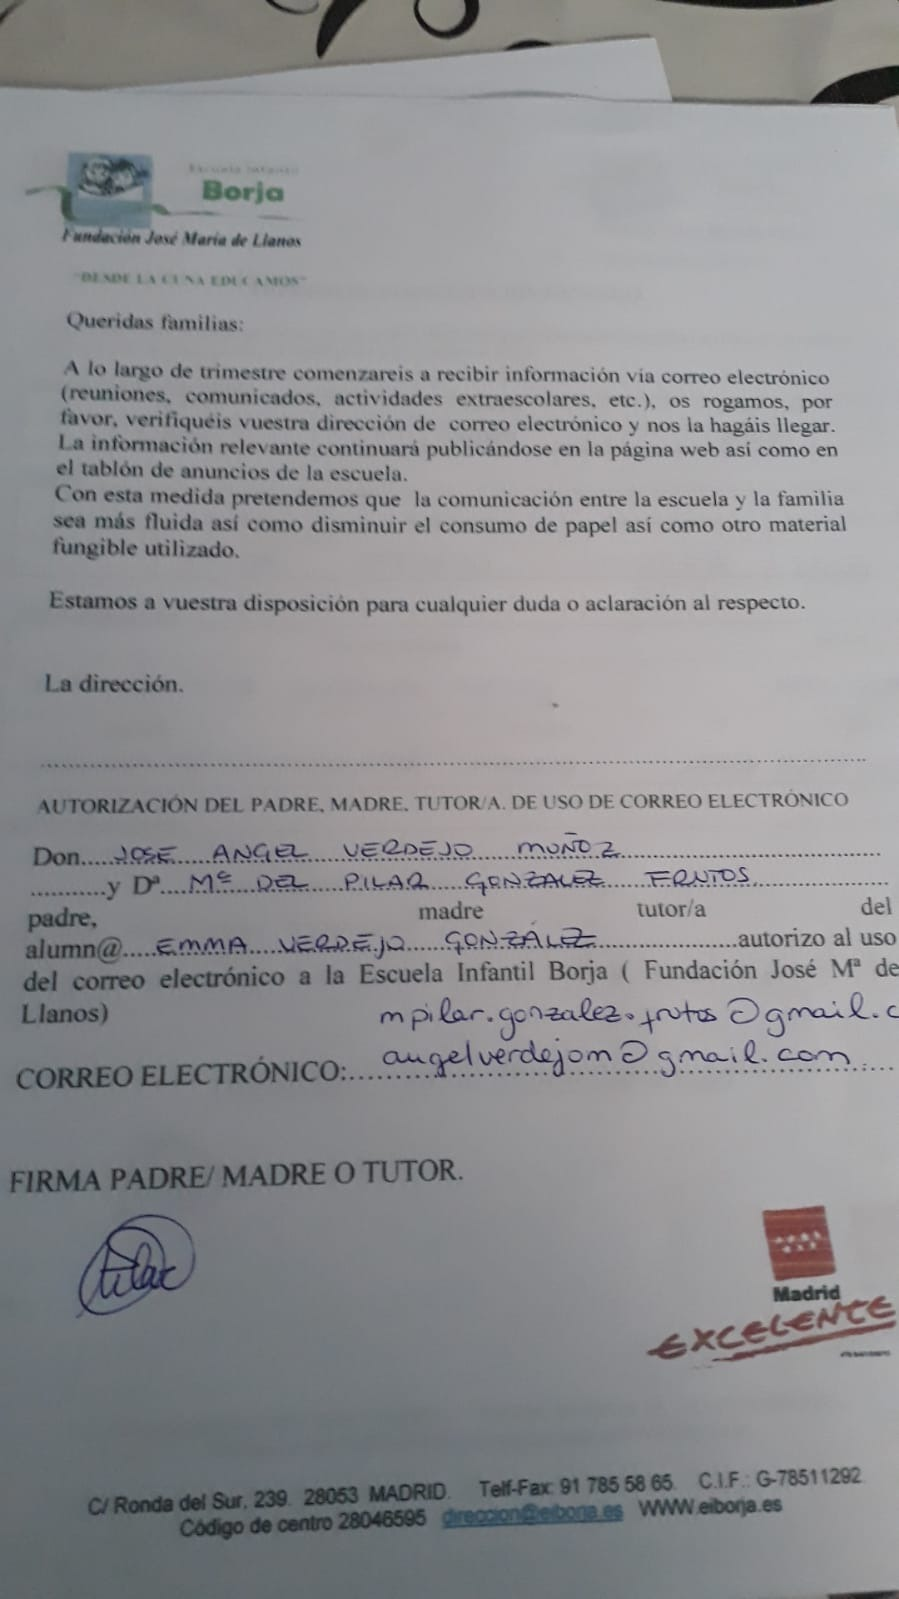 Escuela Infantil
Borja
Fundación José María de Llanos
"DESDE LA CUNA EDUCAMOS"
Queridas familias:
A lo largo de trimestre comenzareis a recibir información vía correo electrónico
(reuniones, comunicados, actividades extraescolares, etc.), os rogamos, por
favor, verifiquéis vuestra dirección de correo electrónico y nos la hagáis llegar.
La información relevante continuará publicándose en la página web así como en
el tablón de anuncios de la escuela.
Con esta medida pretendemos que la comunicación entre la escuela y la familia
sea más fluida así como disminuir el consumo de papel así como otro material
fungible utilizado.
Estamos a vuestra disposición para cualquier duda o aclaración al respecto.
La dirección.
AUTORIZACIÓN DEL PADRE, MADRE, TUTOR/A. DE USO DE CORREO ELECTRÓNICO
Don.....JOSE ANGEL VERDEJO MUÑOZ
...........y Dª....Mª DEL PILAR GONZALEZ FRUTOS
padre, madre tutor/a del
alumn@.....EMMA VERDEJO GONZÁLEZ....................autorizo al uso
del correo electrónico a la Escuela Infantil Borja ( Fundación José Mª de
Llanos) mpilar.gonzalez.frutos@gmail.c
CORREO ELECTRÓNICO:....angelverdejom@gmail.com
FIRMA PADRE/ MADRE O TUTOR.
Pilar
Madrid
EXCELENTE
C/ Ronda del Sur, 239. 28053 MADRID. Telf-Fax: 91 785 58 65. C.I.F.: G-78511292
Código de centro 28046595 direccion@eiborja.es WWW.eiborja.es